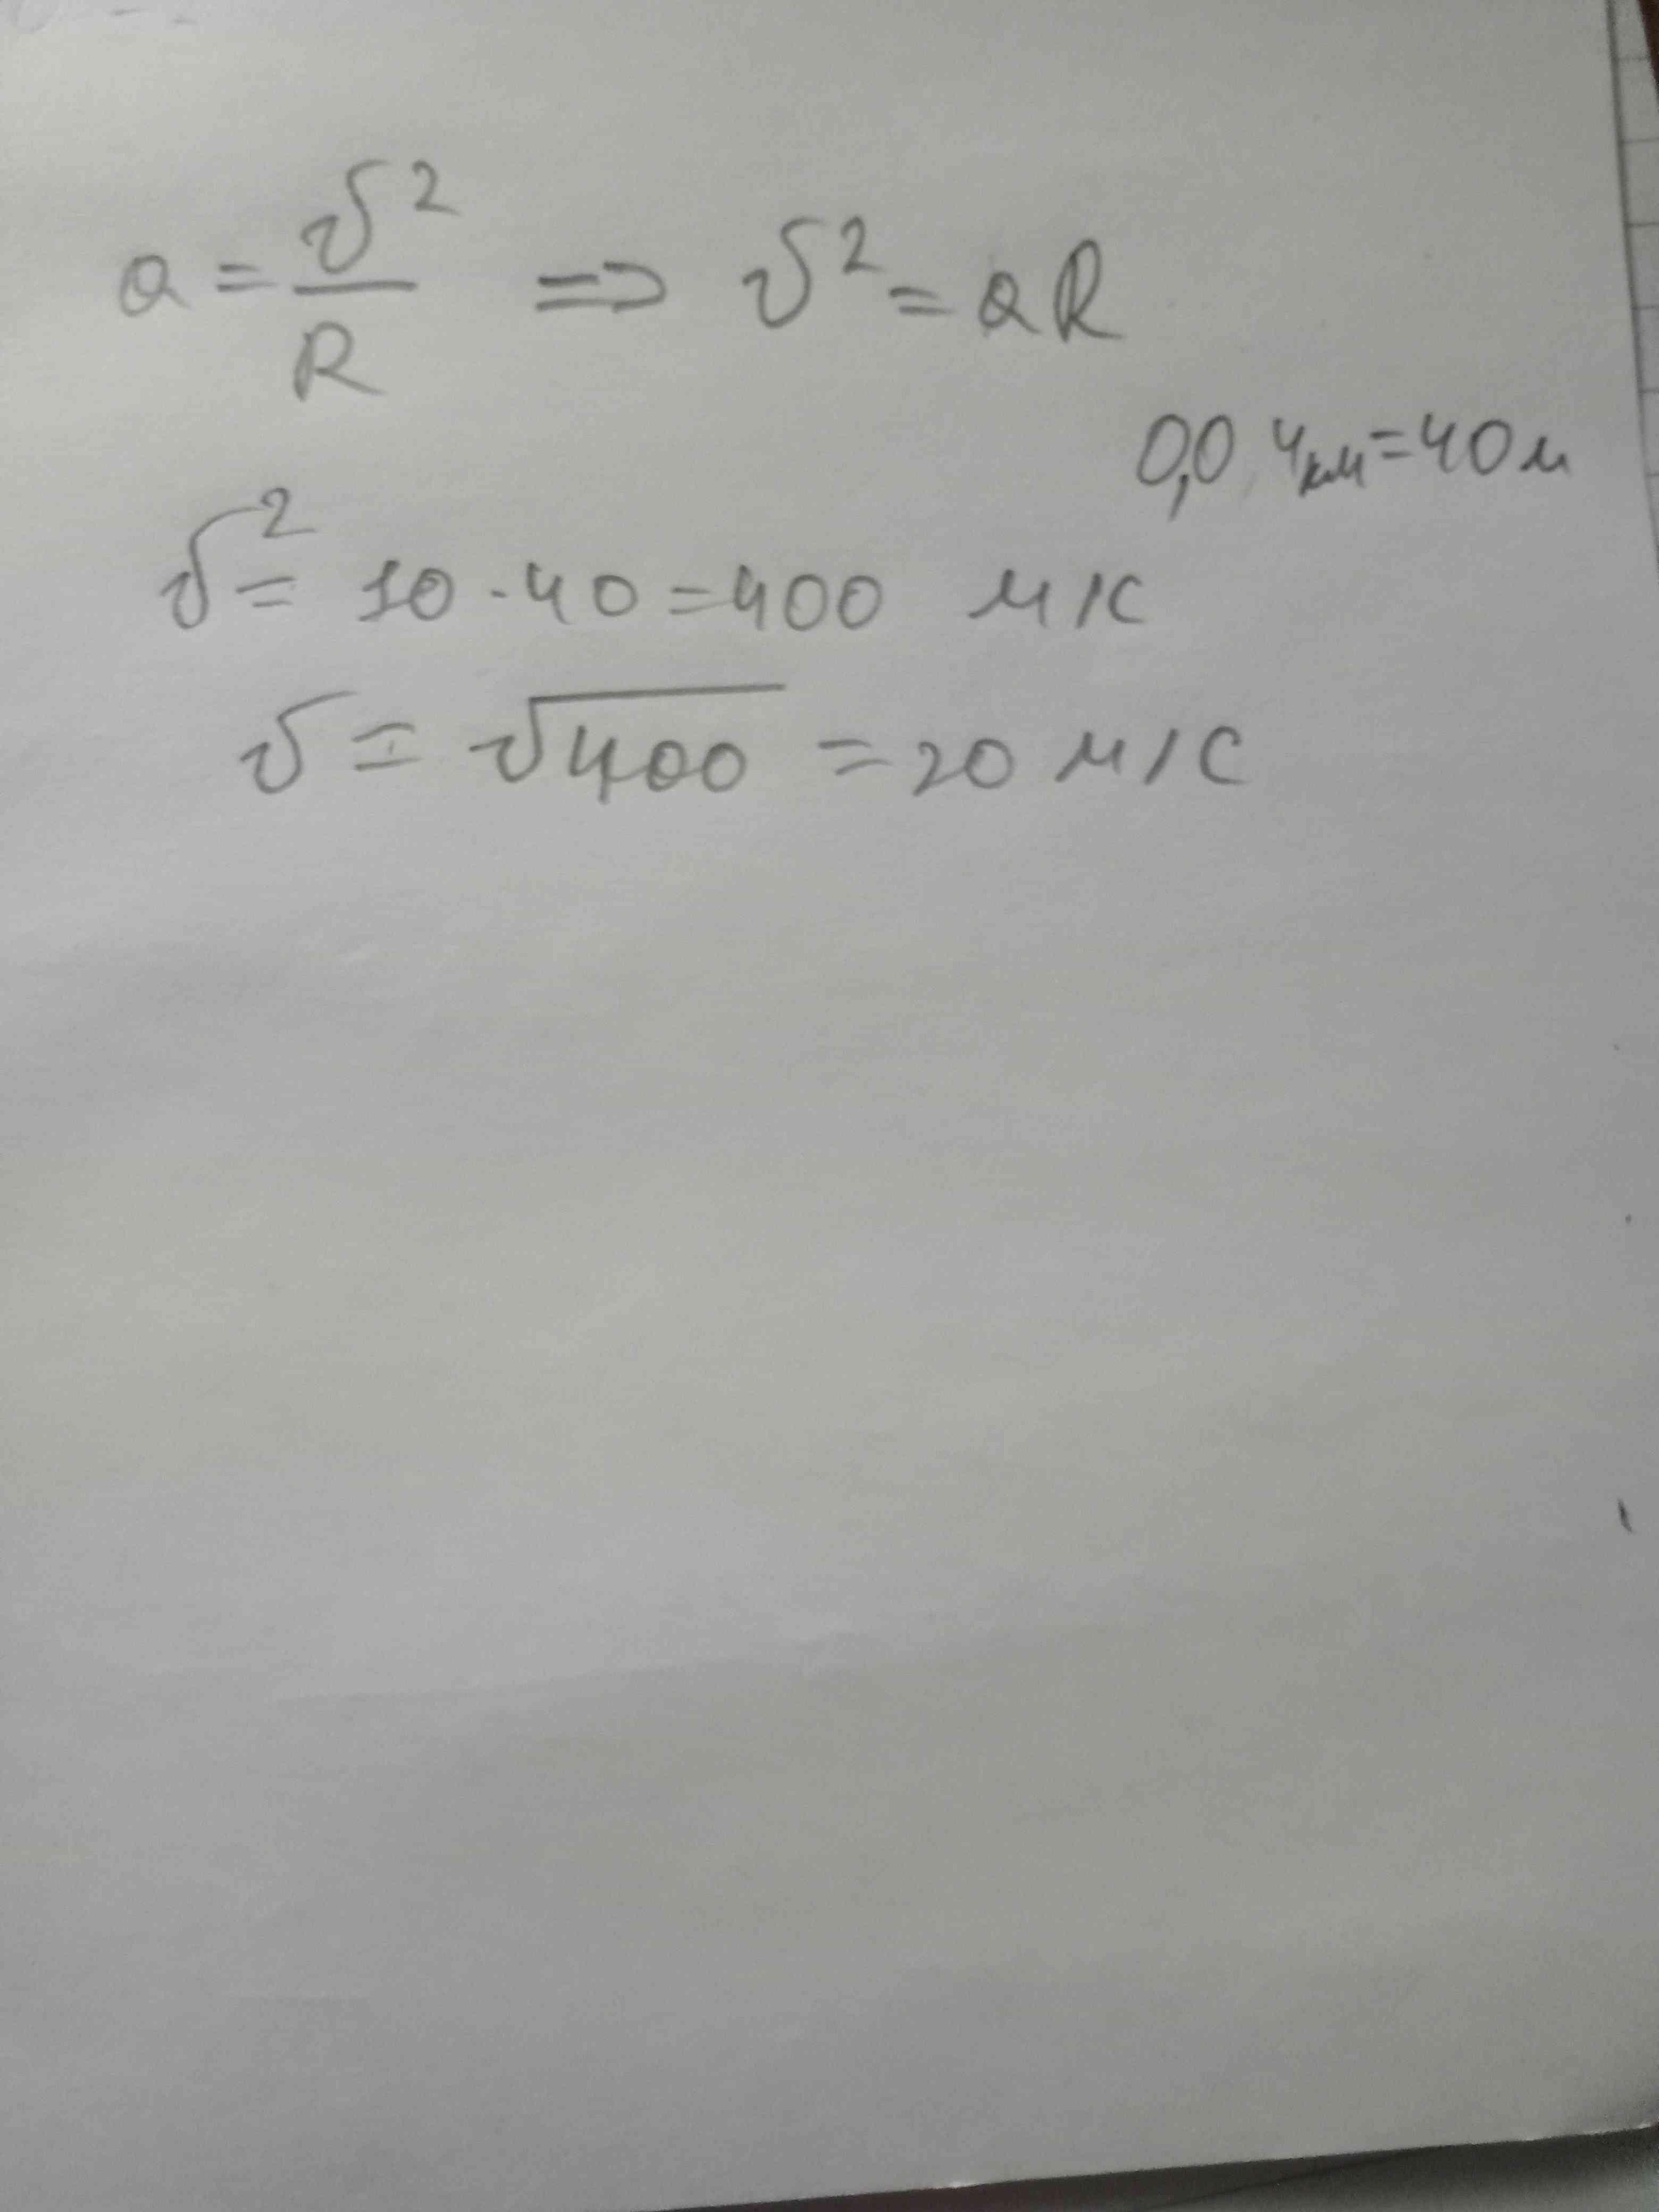 a = v²/R => v² = aR
0,04км=40м
v² = 10·40=400 м/с
v = √400 = 20 м/с